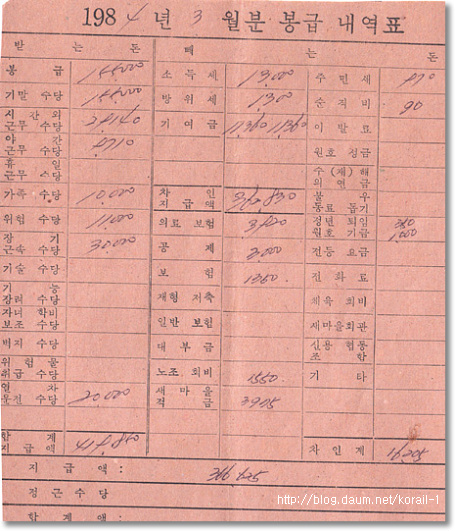 1984년 3월분 봉급 내역표
받는돈 떼는돈
봉급 소득세 13,000 주민세
기말 수당 방위세 1,300 순직비 90
시간외 근무 수당 기여금 11,360 11,360 이발료
야간 근무 수당 원호 성금
휴일 근무 수당 수(재)해 의연금
가족 수당 10,000 차인 지급액 불우 동료 돕기
위험 수당 의료 보험 정년 퇴임 원호 기금 1,000
장기 근속 수당 30,000 공제 3,000 전등 요금
기술 수당 보험 1350 전화료
기능 장려 수당 재형 저축 체육 회비
자녀 학비 보조 수당 일반 보험 새마을회관
벽지 수당 대부금 신용 협동 조합
위험물 취급 수당 노조 회비 1550 기타
연차 운전 수당 20,000 새마을 적금
합계 지급액 차인계 16205
지급액: 366 625
정근수당
합계액:
http://blog.daum.net/korail-1